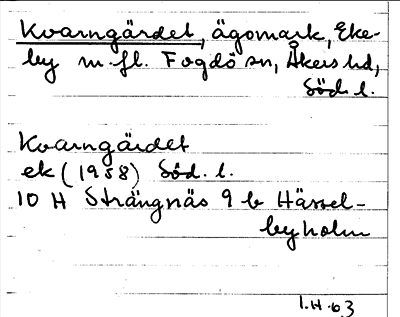 Kvarngärdet, ägomark, Eke-
by m.fl. Fogdö sn, Åkers hd,
Söd. l.
Kvarngärdet
ek (1958) Söd. l.
10 H Strängnäs 9 b Hässel-
byholm
I.H. 63